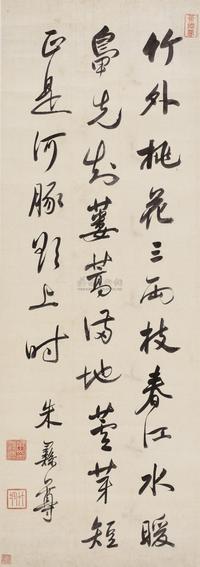 竹外桃花三兩枝春江水暖
鳧先知蔞蒿滿地蘆芽短
正是河豚欲上时
朱彝尊